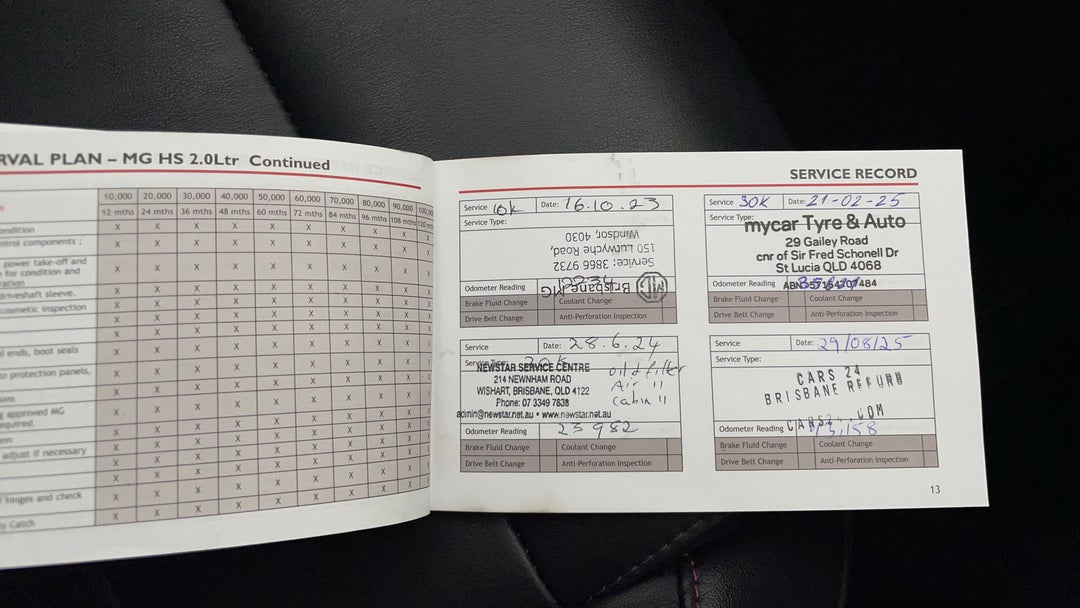 RVAL PLAN – MG HS 2.0Ltr Continued
10,000 20,000 30,000 40,000 50,000 60,000 70,000 80,000 90,000 100,
12 mths 24 mths 36 mths 48 mths 60 mths 72 mths 84 mths 96 mths 108 mths 120
ondition X X X X X X X X X
ntrol components ; X X X X X X X X X
power take-off and
e for condition and X X X X X X X X X
ration
driveshaft sleeve. X X X X X X X X X
cosmetic inspection X X X X X X X X X
X X X X X X X X X
d ends, boot seals X X X X X X X X X
to protection panels, X X X X X X X X X
approved MG X X X X X X X X X
equired.
adjust if necessary X X X X X X X X X
hinges and check X X X X X X X X X
SERVICE RECORD
Service 10k Date: 16.10.23
Service Type:
Brisbane MG
Service: 3866 9732
150 Lutwyche Road,
Windsor, 4030
Odometer Reading
Brake Fluid Change Coolant Change
Drive Belt Change Anti-Perforation Inspection
Service 30K Date: 21-02-25
Service Type:
mycar Tyre & Auto
29 Gailey Road
cnr of Sir Fred Schonell Dr
St Lucia QLD 4068
Odometer Reading
Brake Fluid Change Coolant Change
Drive Belt Change Anti-Perforation Inspection
Service Date: 28.6.24
Service Type: 20K
NEWSTAR SERVICE CENTRE
214 NEWNHAM ROAD
WISHART, BRISBANE, QLD 4122
Phone: 07 3349 7838
admin@newstar.net.au • www.newstar.net.au
oil & filter
Air "
Cabin "
Odometer Reading 23982
Brake Fluid Change Coolant Change
Drive Belt Change Anti-Perforation Inspection
Service Date: 29/08/25
Service Type:
CARS 24
BRISBANE REFURB
Odometer Reading
Brake Fluid Change Coolant Change
Drive Belt Change Anti-Perforation Inspection
13